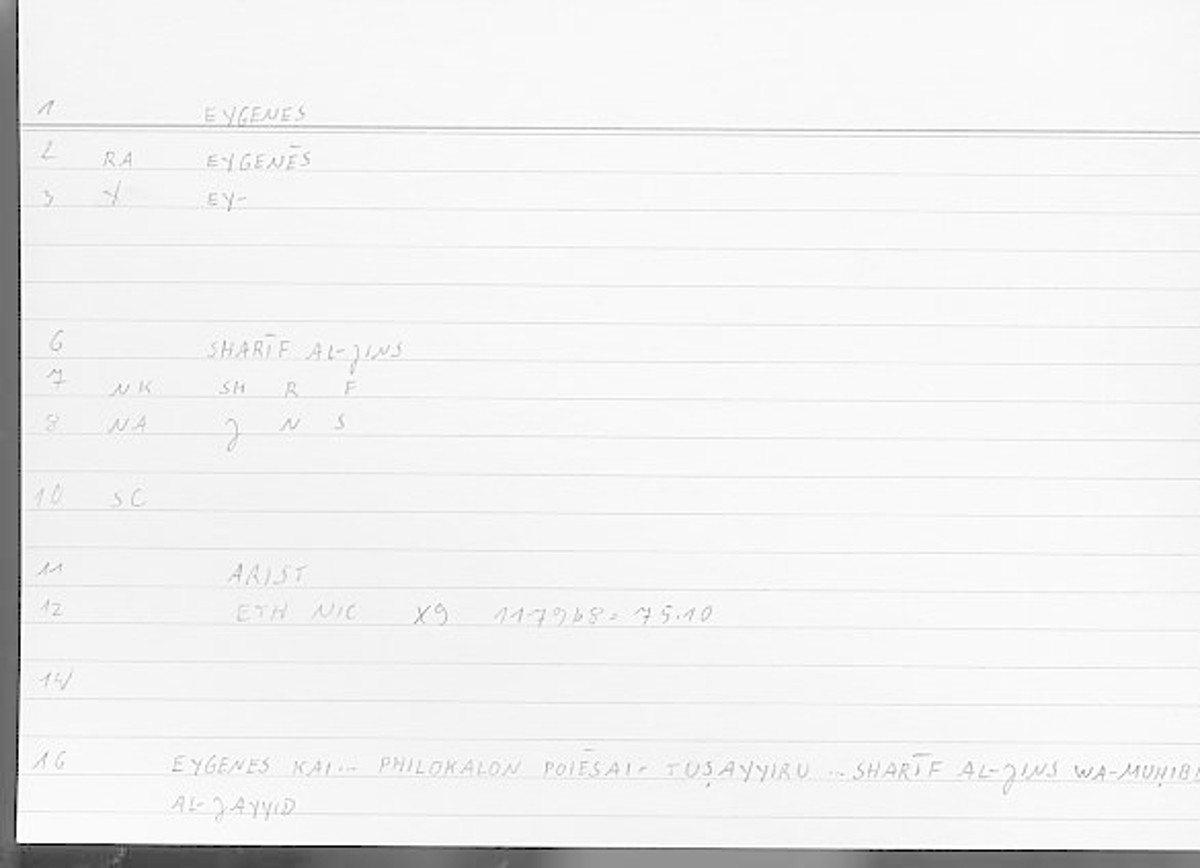 1 EYGENES
2 RA EYGENĒS
3 Y EY-
6 SHARĪF AL-JINS
7 NK SH R F
8 NA J N S
10 SC
11 ARIST
12 ETH NIC X9 1179b8= 75.10
14/
16 EYGENES KAI... PHILOKALON POIĒSAI- TUṢAYYIRU ... SHARĪF AL-JINS WA-MUḤIBB
AL-JAYYID